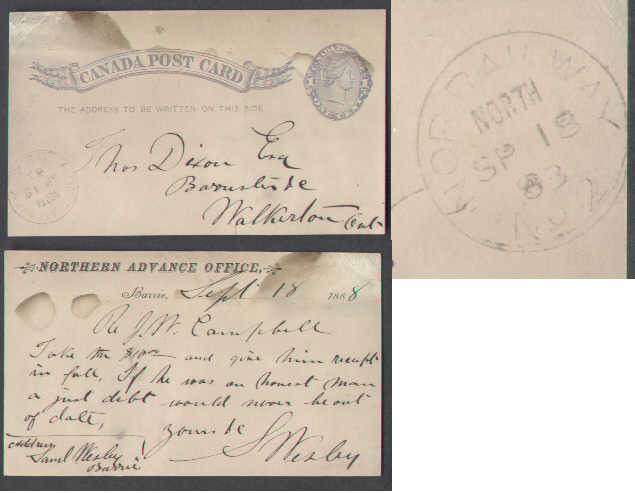 CANADA POST CARD
THE ADDRESS TO BE WRITTEN ON THIS SIDE
Thos Dixon Esq
Walkerton Ont
NOR RAILWAY
NORTH
SP 18
83
No 2
NORTHERN ADVANCE OFFICE,
Barrie, Sept 18 1888
Re J. W. Campbell
Take the $10.00 and give him receipt
in full. If he was an honest man
a just debt would never be out
of date,
yours &c
S Wesby
Address
Saml Wesby
Barrie